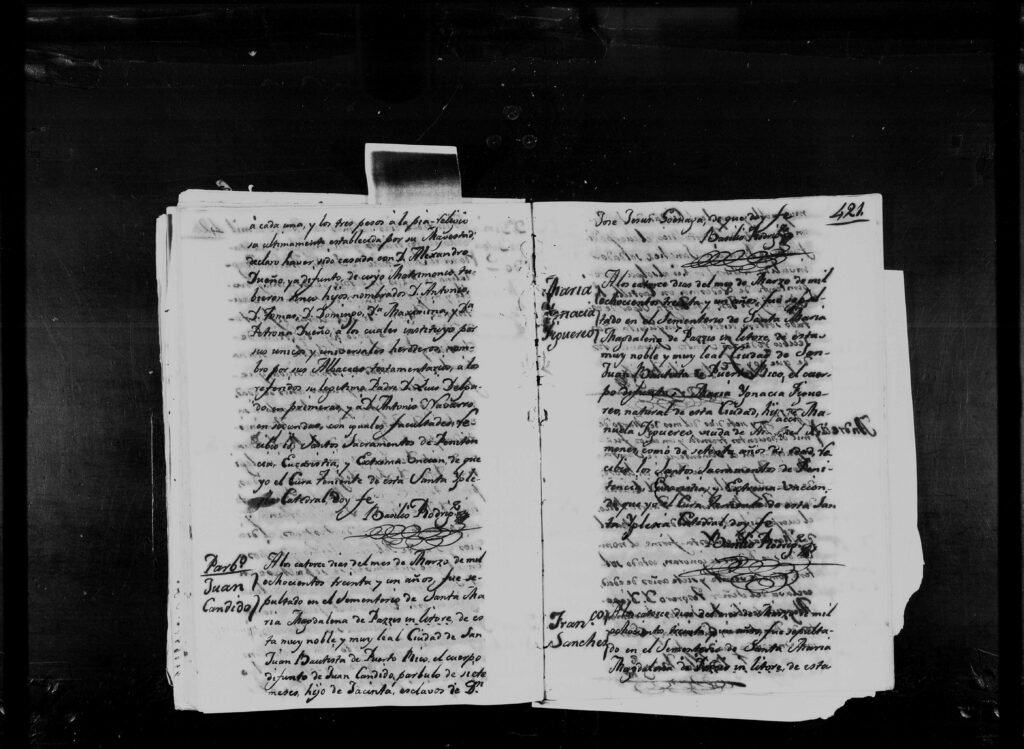 à cada una, y los tres pesos à la pia religio
sa ultimamente establecida por su Magestad;
declaro haver sido casada con D. Alexandro
Dueño, ya difunto, de cuyo Matrimonio tu-
bieron cinco hijos, nombrados D. Antonio,
D. Tomas, D. Domingo, D.ª Maximina, y D.ª
Petrona Dueño, à los cuales instituyo por
sus unicos y universales herederos, nom-
bro por sus Albaceas testamentarios, à los
referidos su legitimo Padre D. Luis Delga-
do, en primeras, y à D. Antonio Navarro
en segundas, con yguales facultades, re-
cibio los Santos Sacramentos de Peniten
cia, Eucaristia, y Extrema-Uncion, de que
yo el Cura Teniente de esta Santa Ygle-
sia Catedral, doy fe
Basilio Rodrig.z
Parb.º
Juan
Candido
A los catorce dias del mes de Marzo de mil
ochocientos treinta y un años, fue se-
pultado en el Sementerio de Santa Ma
ria Magdalena de Pazzis in litore, de es
ta muy noble y muy leal Ciudad de San
Juan Bautista de Puerto Rico, el cuerpo
difunto de Juan Candido, parbulo de siete
meses, hijo de Jacinta, esclavos de D.n
421.
José Jesus Goenaga, de que doy fe
Basilio Rodrig.z
Maria
Ygnacia
Figueredo
A los catorce dias del mes de Marzo de mil
ochocientos treinta y un años, fue sepul
tado en el Sementerio de Santa Maria
Magdalena de Pazzis in litore, de esta
muy noble y muy leal Ciudad de San
Juan Bautista de Puerto Rico, el cuer
po difunto de Maria Ygnacia Figue
reo, natural de esta Ciudad, hija de Ma
nuela Figuereo, viuda de
menos como de setenta años de edad, re
cibio los Santos Sacramentos de Peni
tencia, Eucaristia, y Extrema-Uncion,
de que yo el Cura Teniente de esta San
ta Yglesia Catedral, doy fe
Basilio Rodrig.z
Fran.co
Sanchez
A los catorce dias del mes de Marzo de mil
ochocientos treinta y un años, fue sepulta
do en el Sementerio de Santa Maria
Magdalena de Pazzis in litore, de esta